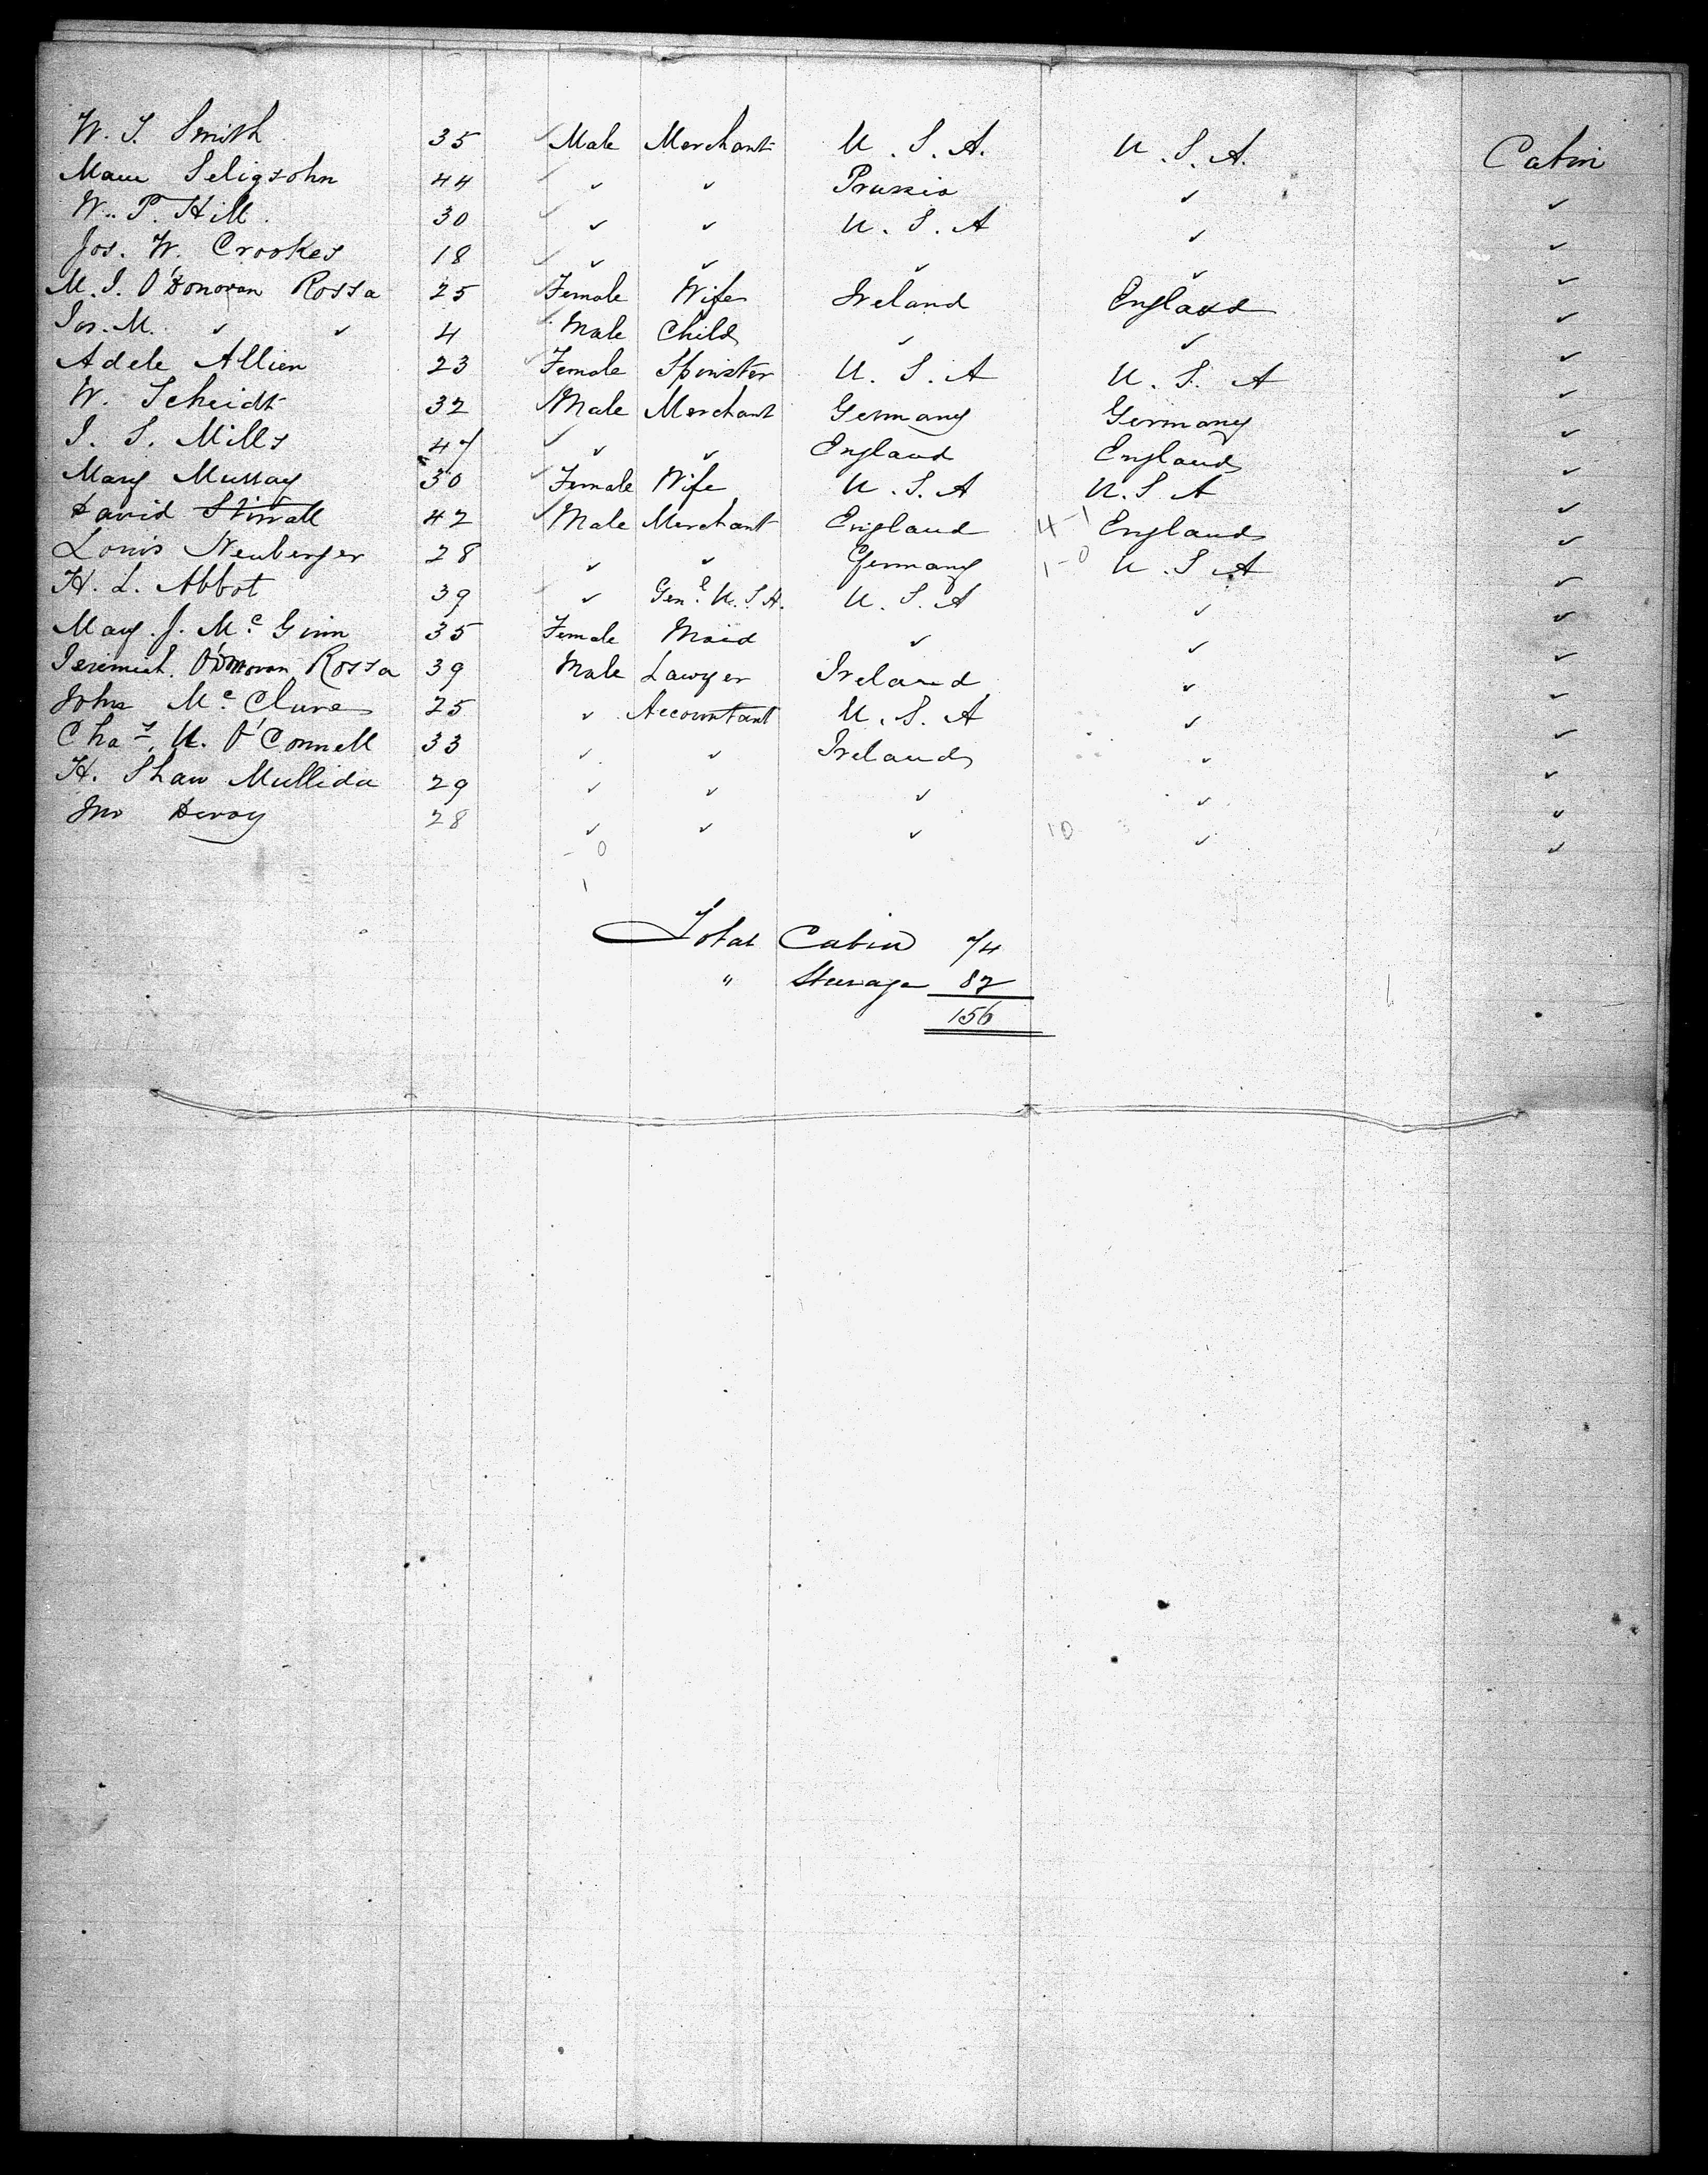 W. S. Smith 35 ✓ Male Merchant U. S. A. U. S. A. Cabin
Seligsohn 44 ✓ ✓ ✓ Prussia ✓ ✓
W. P. Hill 30 ✓ ✓ ✓ U. S. A ✓ ✓
Jos. W. Crookes 18 ✓ ✓ ✓ ✓ ✓ ✓
M. J. O'Donovan Rossa 25 ✓ Female Wife Ireland England ✓
Jas. M. ✓ ✓ 4 ✓ Male Child ✓ ✓ ✓
Adele Allien 23 ✓ Female Spinster U. S. A U. S. A ✓
W. Scheidt 32 ✓ Male Merchant Germany Germany ✓
J. S. Mills 47 ✓ ✓ ✓ England England ✓
Mary Murray 30 ✓ Female Wife U. S. A U. S. A ✓
David 42 ✓ Male Merchant England 4-1 England ✓
Louis Neuberger 28 ✓ ✓ Germany 1-0 U. S. A ✓
H. L. Abbot 39 ✓ Genl. U. S. A. U. S. A ✓ ✓
Mary. J. Mc. Ginn 35 Female Maid ✓ ✓ ✓
Jeremiah. O'Donovan Rossa 39 Male Lawyer Ireland ✓ ✓
John Mc. Clure 25 ✓ Accountant U. S. A ✓ ✓
Chas. U. O'Connell 33 ✓ ✓ Ireland ✓ ✓
H. Shaw Mullida 29 ✓ ✓ ✓ ✓ ✓
Jno Devoy 28 ✓ ✓ ✓ 10 3 ✓ ✓
- 0
1
Total Cabin 74
" Steerage 82
156